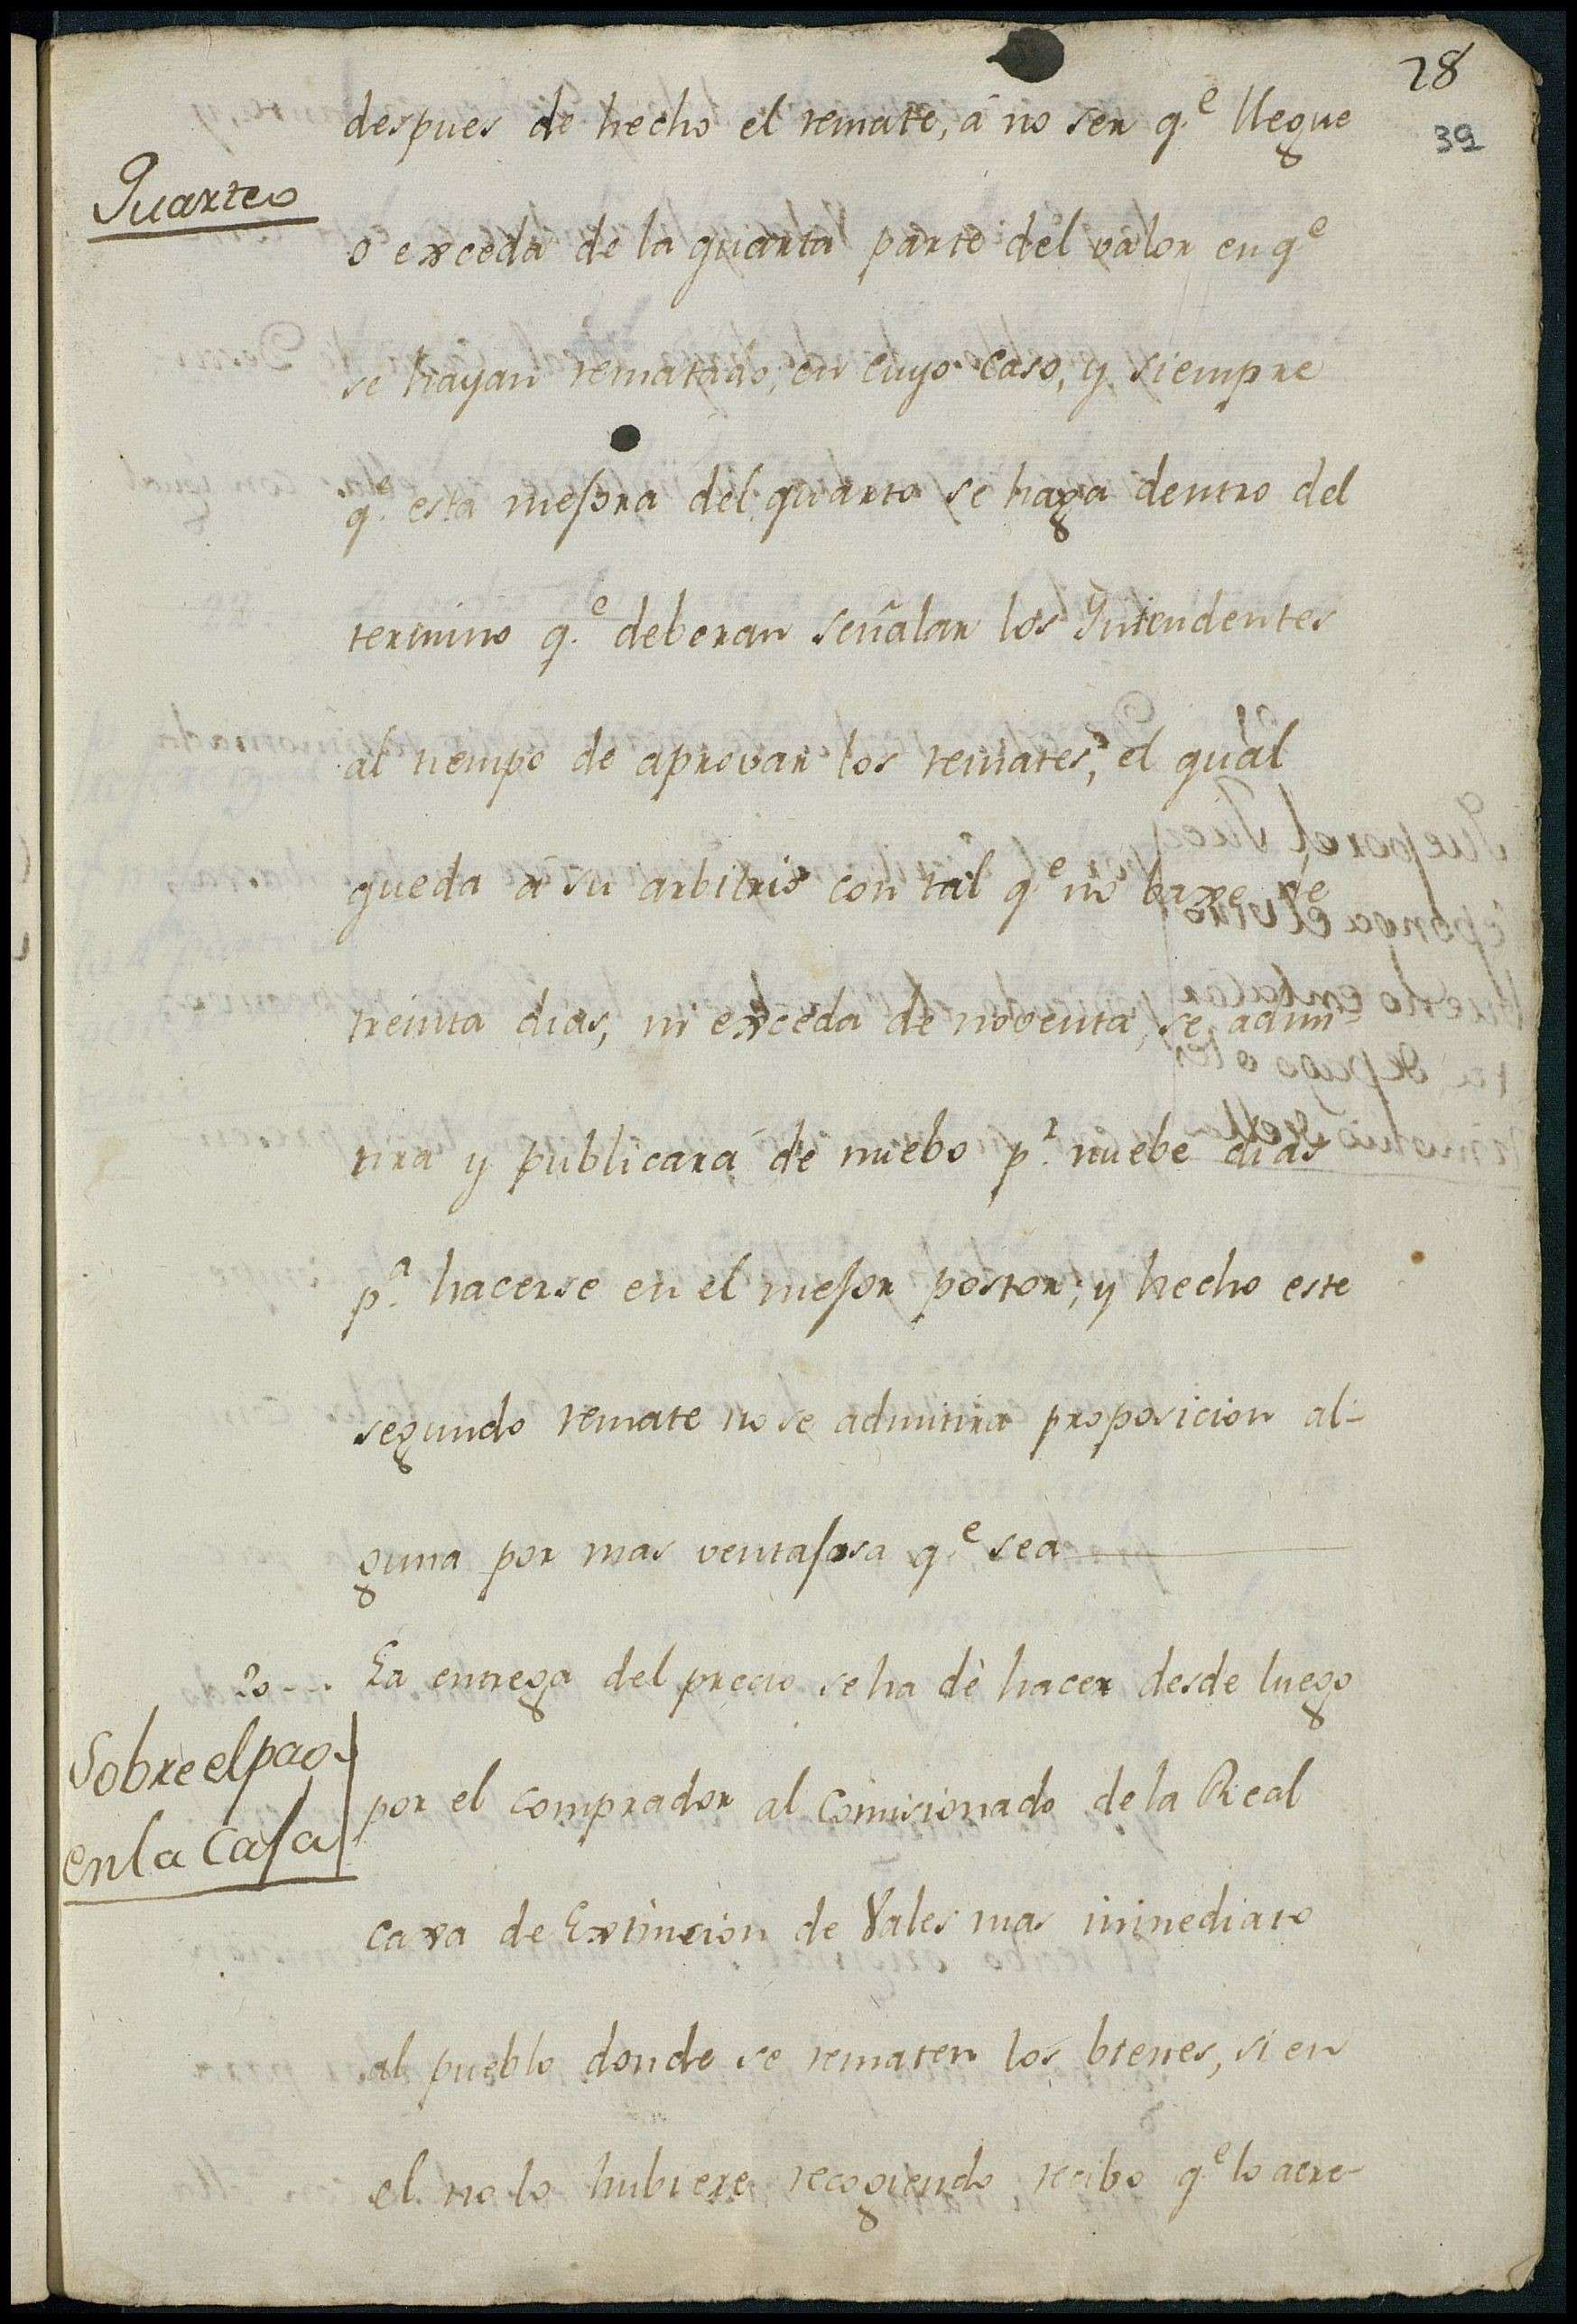 28
39
despues de hecho el remate, á no ser q.e llegue
Quarteo
o exceda de la quarta parte del valor en q.e
se hayan rematado; en cuyo caso, y siempre
q.e esta mejora del quarto se haga dentro del
termino q.e deberan señalar los Intendentes
al tiempo de aprovar los remates, el qual
queda á su arbitrio con tal q.e no baxe de
treinta dias, ni exceda de noventa, se admi-
tira y publicará de nuebo p.r nuebe dias
p.a hacerse en el mejor postor; y hecho este
segundo remate no se admitira proposicion al-
guna por mas ventajosa q.e sea
20 La entrega del precio se ha de hacer desde luego
Sobre el pago
en la Caja
por el comprador al Comisionado de la Real
caxa de Extincion de Vales mas inmediato
al pueblo donde se rematen los bienes, si en
el no lo hubiere, recogiendo recibo q.e lo acre-